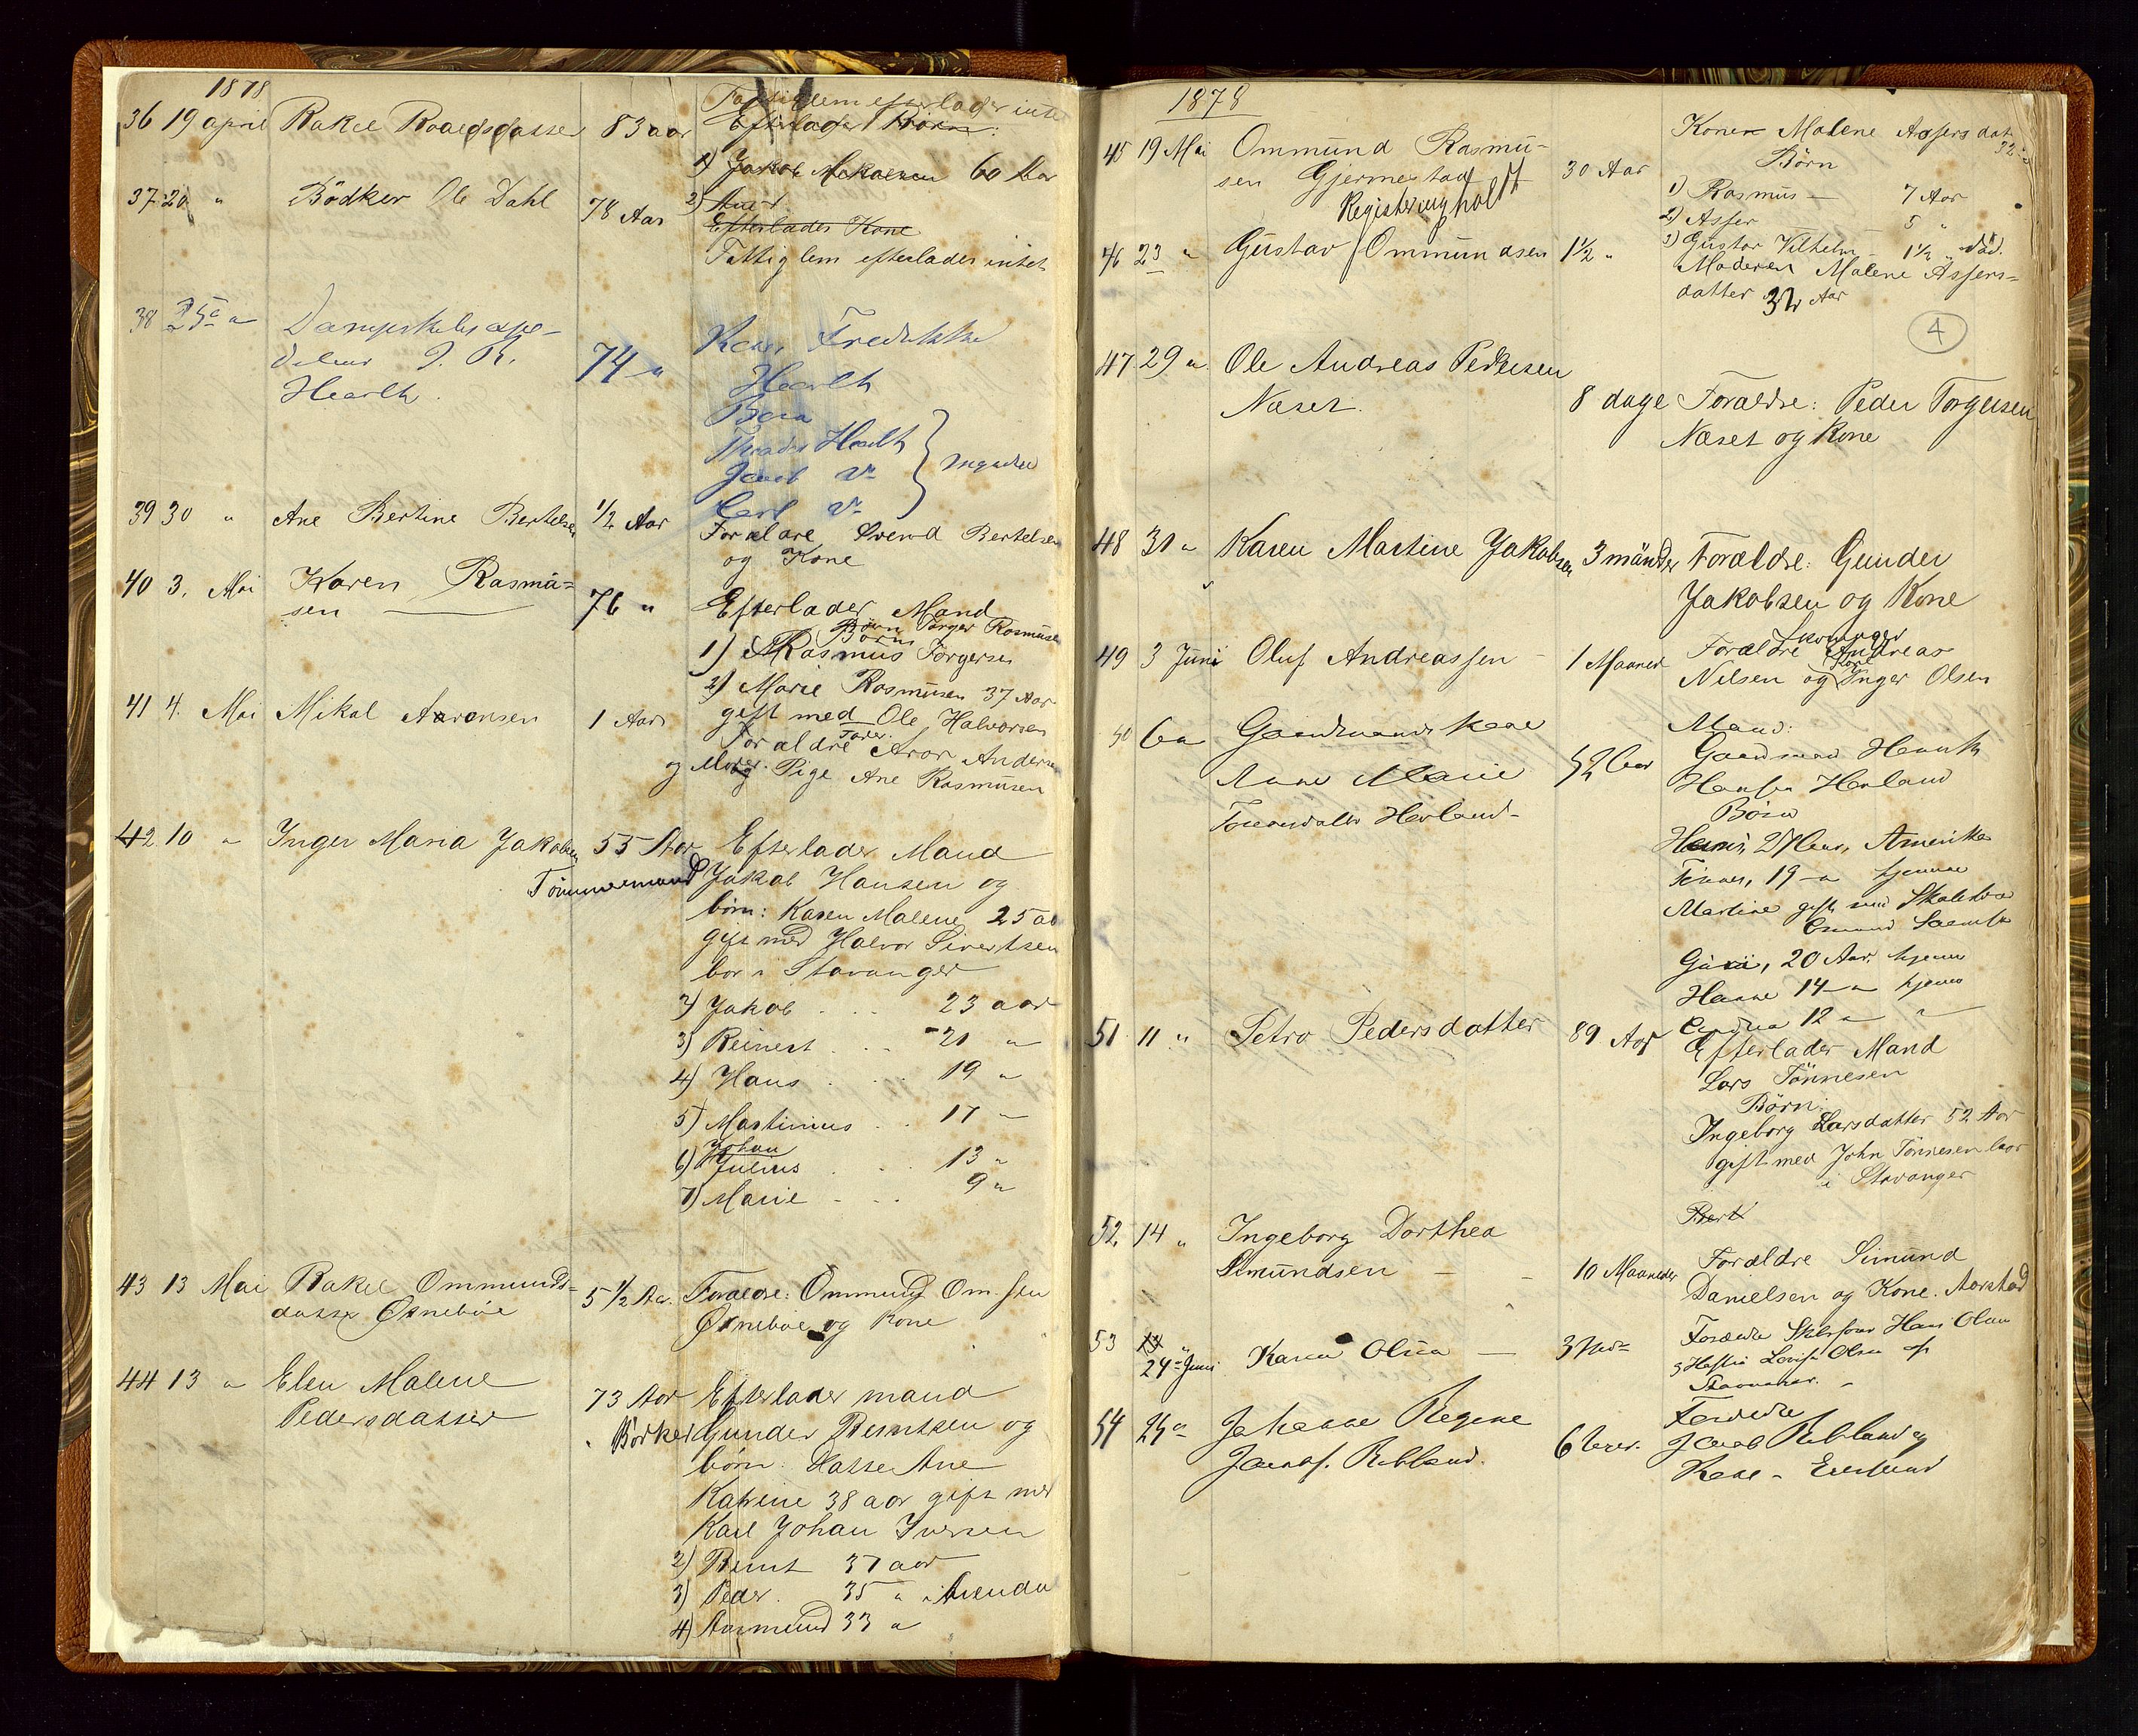 1878
36 19 april Rakel Roaldsdatter 83 aar
Fattiglem efterlader intet
Efterlader Børn:
1) Jakob Mikalsen 60 Aar
2) Ane
37 20 " Bödker Ole Dahl 78 Aar
Efterlader Kone
Fattiglem efterlader intet
38 25 "
74 "
Kone Fredrikke
Børn
Jacob
Carl
39 30 " Ane Bertine Bertelsen 1/2 Aar
Forældre Svend Bertelsen
og Kone
40 3. Mai Karen Rasmu=
sen 76 "
Efterlader Mand
Børn Torger Rasmusen
Børn
1) Rasmus Torgersen
2) Marie Rasmusen 37 Aar
gift med Ole Halvorsen
41 4. Mai Mikal Aronsen 1 Aar
Forældre Fader Aron Andersen
og Moder Pige Ane Rasmusen
42 10 " Inger Maria Jakobsen 55 Aar
Efterlader Mand
Tömmermand Jakob Hansen og
börn: Karen Malene 25 aa
gift med Halvor Sivertsen
bor i Stavanger
2) Jakob . . . 23 aar
3) Reinert . . . 21 "
4) Hans . . . 19 "
5) Martinius . . 17 "
Johan
6) Julius . . . 13 "
7) Marie . . . 9 "
43 13 Mai Rakel Ommunds=
datter Ørneböe 5 1/2 Aar.
Forældre: Ommund Om.sen
Ørneböe og Kone
44 13 " Elen Malene
Pedersdatter 73 Aar
Efterlader mand
Bödker Gunder Berntsen og
börn: Datter Ane
Katrine 38 aar gift med
Karl Johan Iversen
2) Bernt 37 aar
3) Peder . 35 " i Arendal
4) Aasmund 33 "
1878
45 19 Mai Ommund Rasmu-
sen Gjermestad 30 Aar
Registrering holdt
Konen Malene Assersdat
32
Børn
1) Rasmus — 7 Aar
2) Asser — 5 "
3) Gustav Vilhelm 1 1/2 " död.
46 23 " Gustav Ommundsen 1 1/2 "
Moderen Malene Assers=
datter 32 Aar
4
47 29 " Ole Andreas Pedersen
Næset. 8 dage
Forældre: Peder Torgersen
Næset og Kone
48 31 " Karen Martine Jakobsen 3 månder
Forældre: Gunder
Jakobsen og Kone
49 3 Juni Oluf Andreassen 1 Maaned
Skomager
Forældre Andreas
Kone
Nelsen og Inger Olsen
50 6 " Gaardmandskone
Anne Marie
Herland 52 Aar
Mand:
Gaardmand Henrik
Hansen Herland
Børn
27 Aar, Amerika
19 " hjemme
Martine gift med
20 Aar, hjemme
Hanne 14 " hjemme
12 " "
51 11 " Petro Pedersdatter 89 Aar
Efterlader Mand
Lars Tönnesen
Børn:
Ingeborg Larsdatter 52 Aar
gift med John Tönnesen boer
i Stavanger
Berk
52. 14 " Ingeborg Dorthea
Simundsen — 10 Maaneder
Forældre Simund
Danielsen og Kone. Aarstad
53 14 "
24 Juni Karen Olsen — 3
Forældre Hans Olsen
Olsen af
Stavanger.
54 25 " Johanne Regine
Jacobs. Rebland. 6
Forældre
Jacob Rebland og
Kone - Egersund